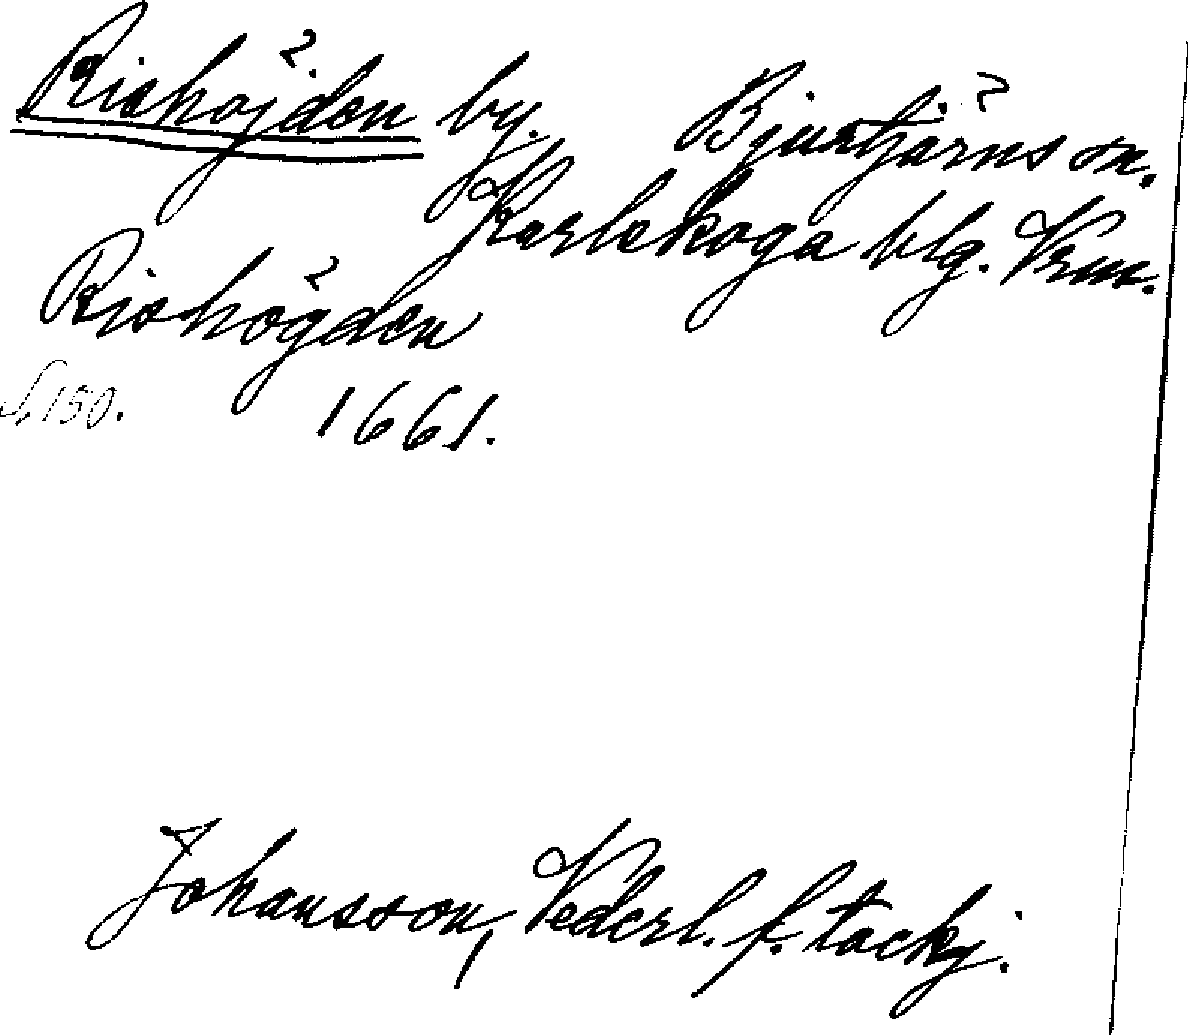 Rishöjden by. Bjurtjärns sn.
Karlskoga blg. Vrm.
Rishögden
s. 150. 1661.
Johansson, Vederl. f. tackj.